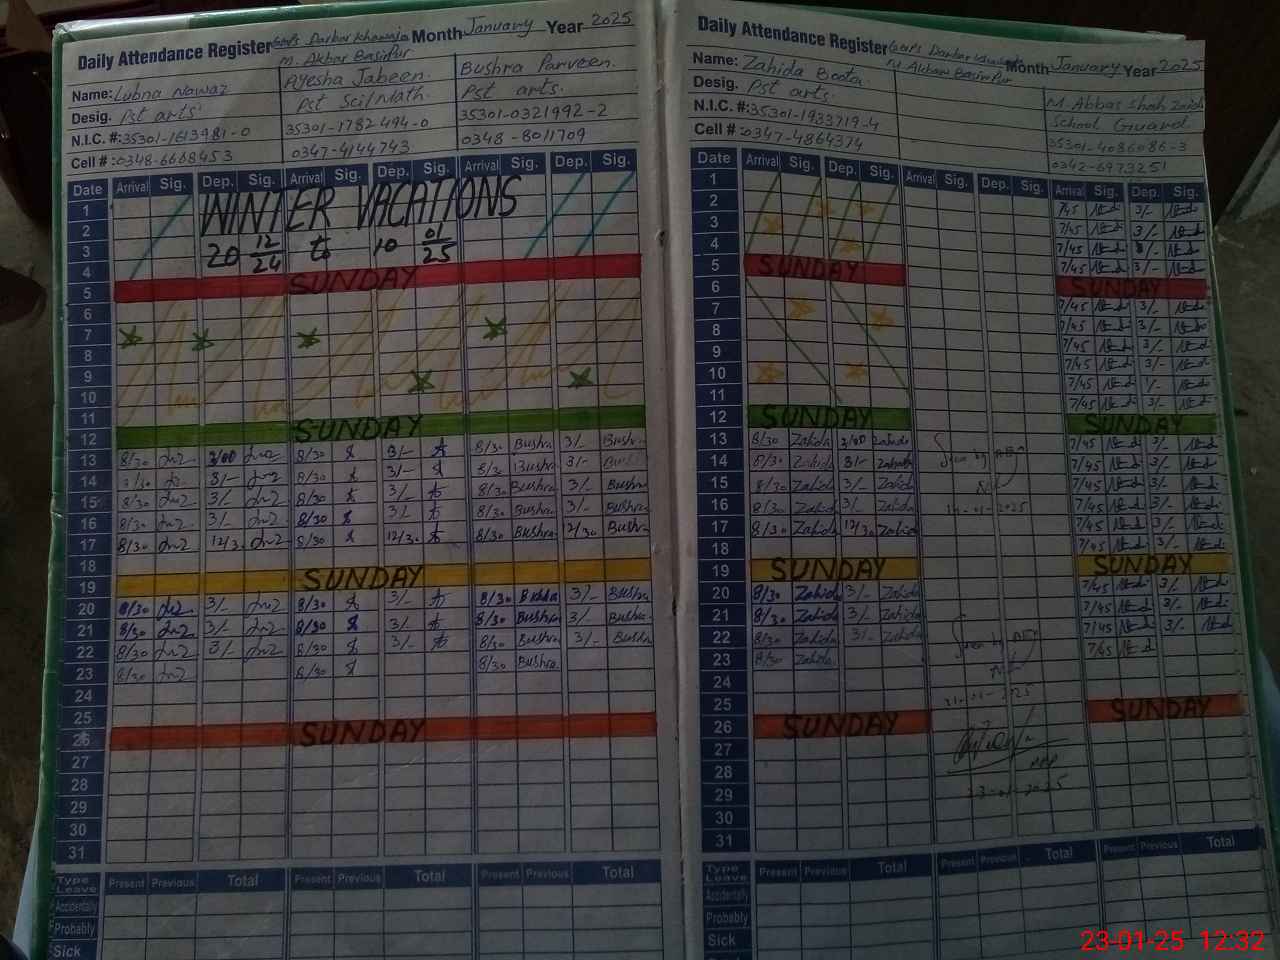 Daily Attendance Register GGPS Darbar Khawaja M. Akbar Basirpur Month January Year 2025
Name: Lubna Nawaz Ayesha Jabeen Bushra Parveen
Desig. Pst arts Pst Sci/Math Pst arts
N.I.C. #: 35301-1613981-0 35301-1782494-0 35301-0321992-2
Cell #: 0348-6668453 0347-4144743 0348-8011709
Date Arrival Sig. Dep. Sig. Arrival Sig. Dep. Sig. Arrival Sig. Dep. Sig.
1 WINTER VACATIONS
2
3 20 12/24 to 10 01/25
4
5 SUNDAY
6
7
8
9
10
11
12 SUNDAY
13 8/30 3/00 8/30 3/- 8/30 Bushra 3/- Bushra
14 8/30 3/- 8/30 3/- 8/30 Bushra 3/-
15 8/30 3/- 8/30 3/- 8/30 Bushra 3/- Bushra
16 8/30 3/- 8/30 3/- 8/30 Bushra 3/- Bushra
17 8/30 12/30 8/30 12/30 8/30 Bushra 12/30 Bushra
18
19 SUNDAY
20 8/30 3/- 8/30 3/- 8/30 Bushra 3/- Bushra
21 8/30 3/- 8/30 3/- 8/30 Bushra 3/- Bushra
22 8/30 3/- 8/30 3/- 8/30 Bushra 3/- Bushra
23 8/30 8/30 8/30 Bushra
24
25
26 SUNDAY
27
28
29
30
31
Type Leave Present Previous Total Present Previous Total Present Previous Total
Accidentally
Probably
Sick
Daily Attendance Register GGPS Darbar Khawaja M. Akbar Basirpur Month January Year 2025
Name: Zahida Boota M. Abbas Shah Zaidi
Desig. Pst arts School Guard
N.I.C. #: 35301-1933719-4 35301-4086086-3
Cell #: 0347-4864374 0342-6973251
Date Arrival Sig. Dep. Sig. Arrival Sig. Dep. Sig. Arrival Sig. Dep. Sig.
1 7/45 3/-
2 7/45 3/-
3 7/45 3/-
4 7/45 3/-
5 SUNDAY SUNDAY
6 7/45 3/-
7 7/45 3/-
8 7/45 3/-
9 7/45 3/-
10 7/45 1/-
11 7/45 3/-
12 SUNDAY SUNDAY
13 8/30 Zahida 3/00 Zahida 7/45 3/-
14 8/30 Zahida 3/- Zahida Seen by 7/45 3/-
15 8/30 Zahida 3/- Zahida 7/45 3/-
16 8/30 Zahida 3/- Zahida 7/45 3/-
17 8/30 Zahida 12/30 Zahida 7/45 3/-
18 7/45 3/-
19 SUNDAY SUNDAY
20 8/30 Zahida 3/- Zahida 7/45 3/-
21 8/30 Zahida 3/- Zahida 7/45 3/-
22 8/30 Zahida 3/- Zahida Seen by 7/45 3/-
23 8/30 Zahida 7/45
24
25
26 SUNDAY SUNDAY
27
28
29 23-01-2025
30
31
Type Leave Present Previous Total Present Previous Total Present Previous Total
Accidentally
Probably
Sick
23-01-25 12:32